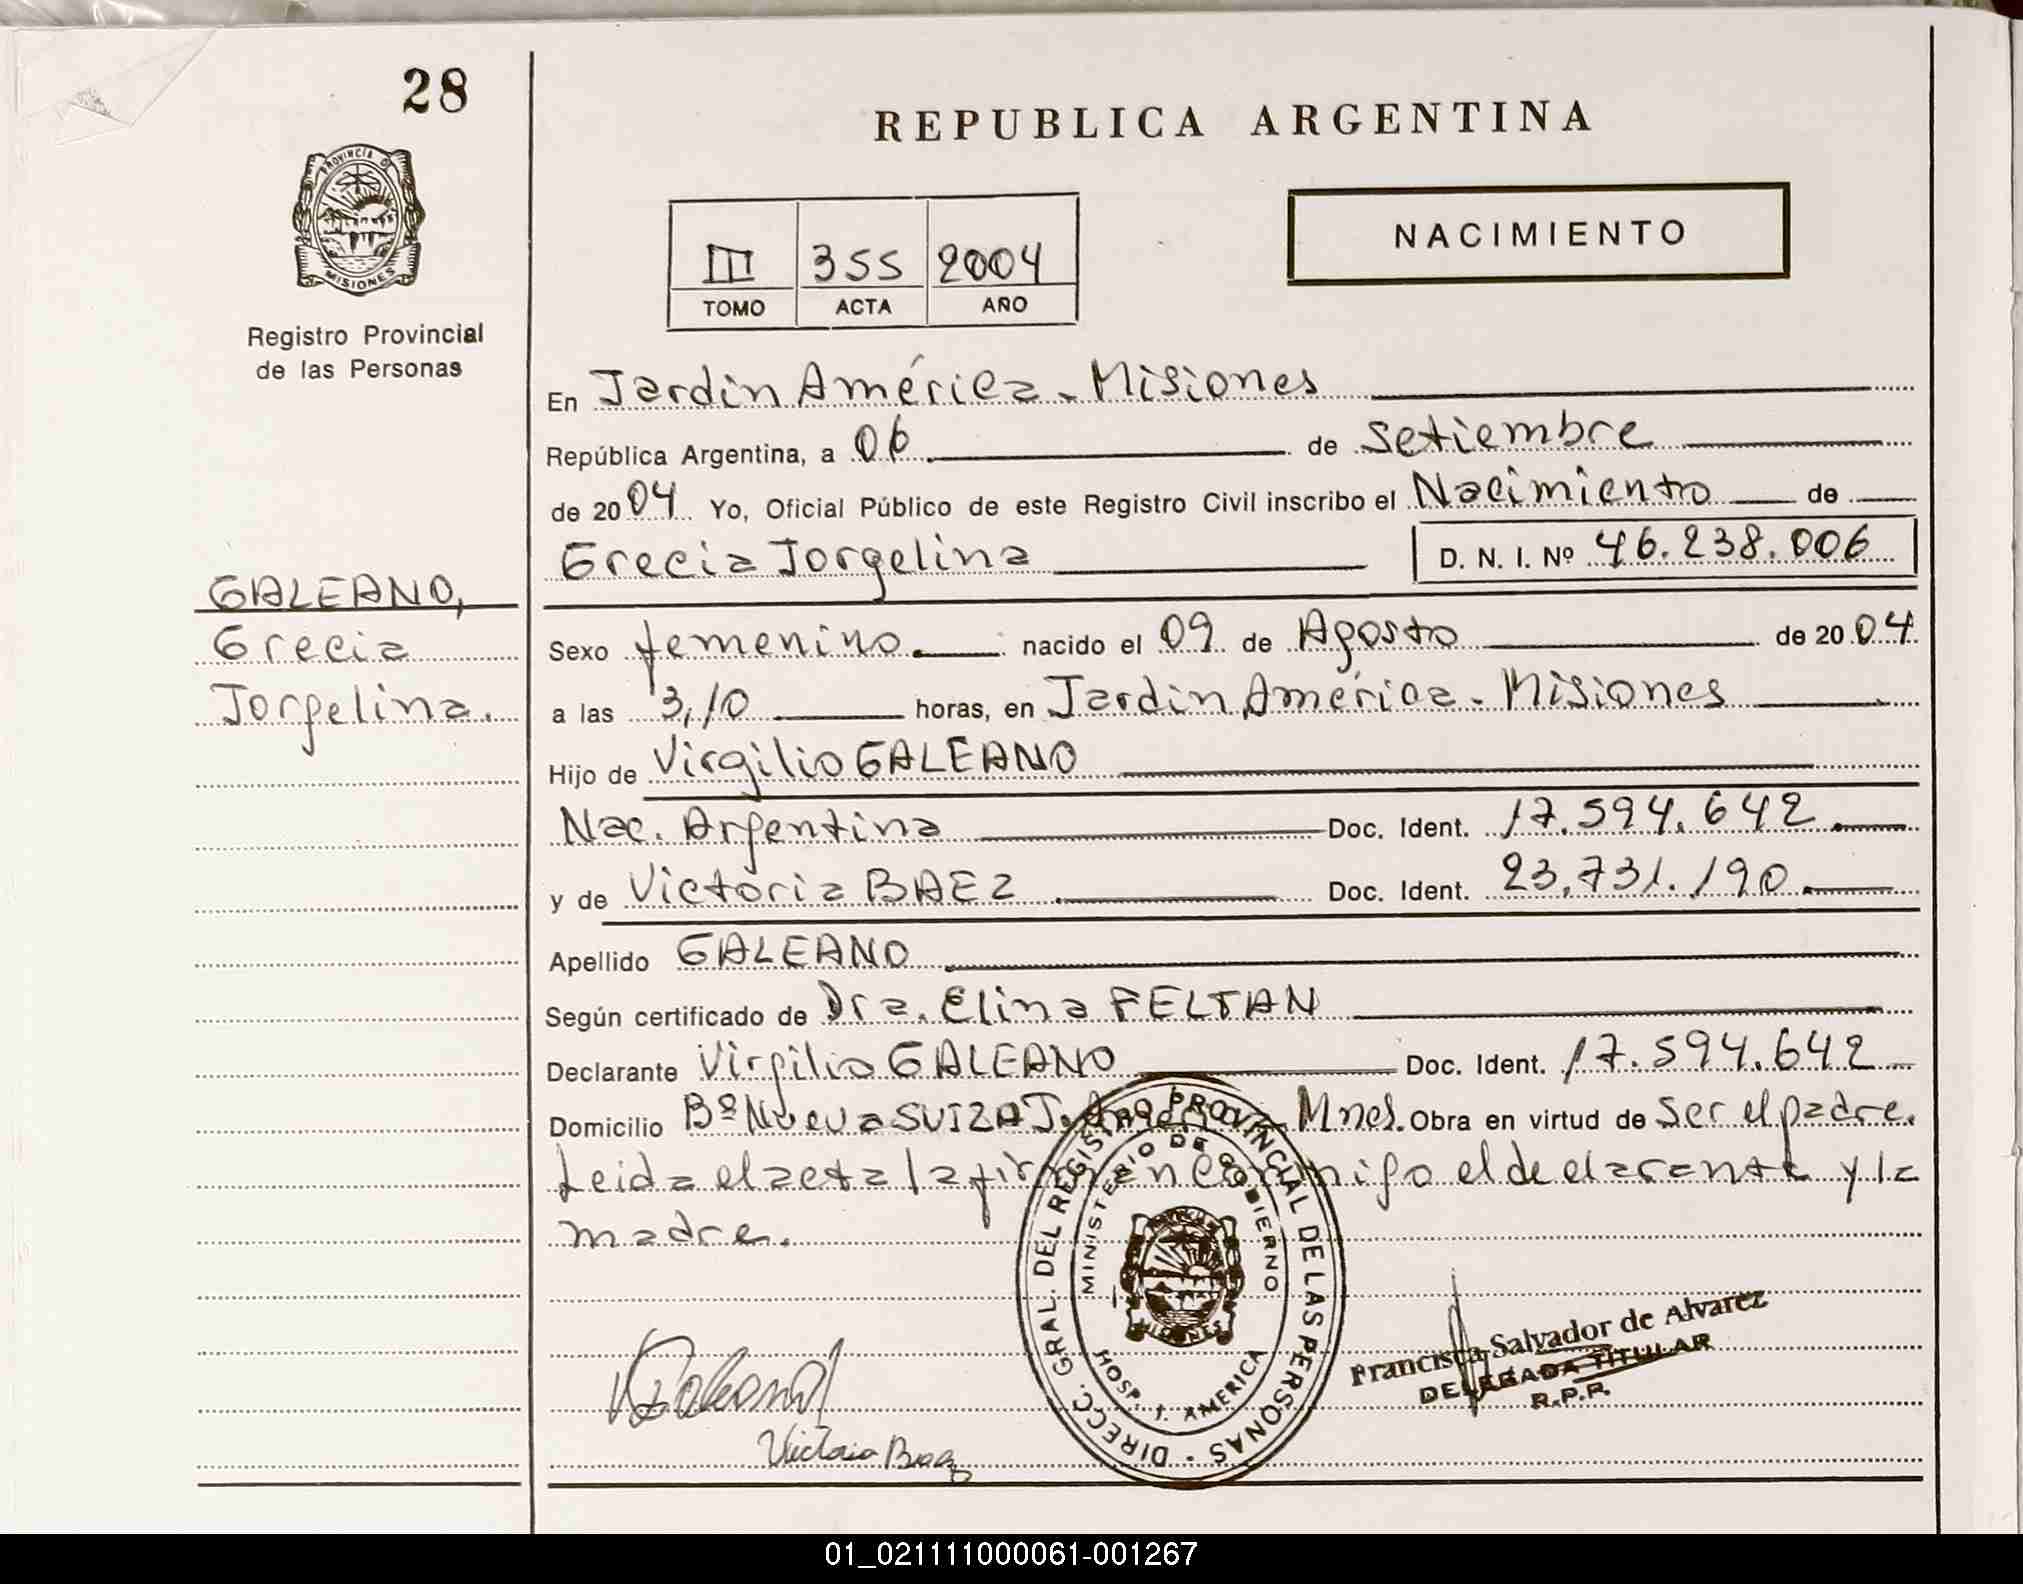 28
REPUBLICA ARGENTINA
PROVINCIA D
MISIONES
Registro Provincial
de las Personas
III 355 2004
TOMO ACTA AÑO
NACIMIENTO
En Jardin América - Misiones
República Argentina, a 06 de Setiembre
de 2004 Yo, Oficial Público de este Registro Civil inscribo el Nacimiento de
Grecia Jorgelina D. N. I. Nº 46.238.006
GALEANO,
Grecia
Jorgelina.
Sexo femenino. nacido el 09 de Agosto de 2004
a las 3,10 horas, en Jardin América - Misiones
Hijo de Virgilio GALEANO
Nac. Argentina Doc. Ident. 17.594.642
y de Victoria BAEZ Doc. Ident. 23.731.190
Apellido GALEANO
Según certificado de Dra. Elina FELTAN
Declarante Virgilio GALEANO Doc. Ident. 17.594.642
Domicilio Bº Nueva SUIZA J. - Mnes. Obra en virtud de ser el padre.
Leida el acta la firman conmigo el declarante y la
madre.
DIRECC. GRAL. DEL REGISTRO PROVINCIAL DE LAS PERSONAS
MINISTERIO DE GOBIERNO
MISIONES
HOSP. J. AMERICA
Francisca Salvador de Alvarez
DELEGADA TITULAR
R.P.P.
Victoria Baez
01_021111000061-001267